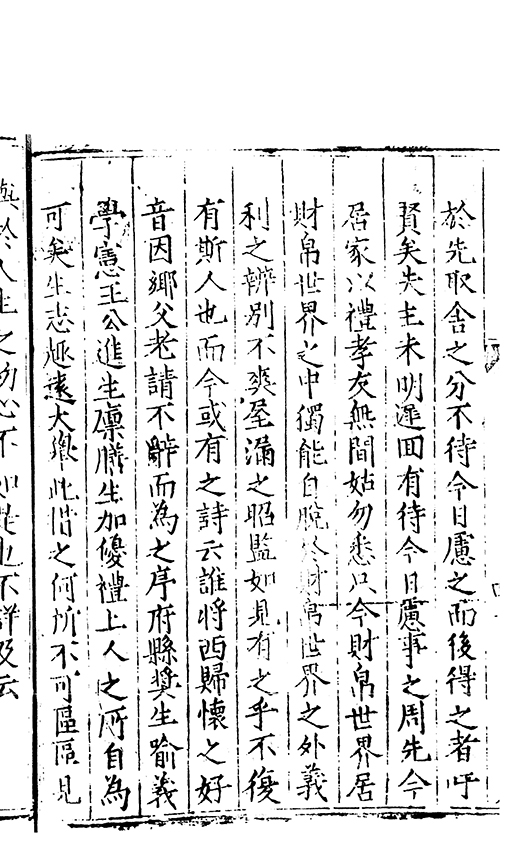 於先取舍之分不待今日慮之而後得之者吁
賢矣先主未明遲囬有待今日慮事之周先今
居家以禮孝友無間姑勿悉只今財帛世界居
財帛世界之中獨能自脫於財帛世界之外義
利之辨別不爽盈滿之昭監如見有之乎不復
有斯人也而今或有之詩云誰將西歸懷之好
音因鄉父老請不辭而為之序府縣奬生喻義
學憲王公進生廪膳生加優禮上人之所自為
可矣生志趣遠大舉此惜之何所不可區區見
於人生之初心不如是也不詳及云